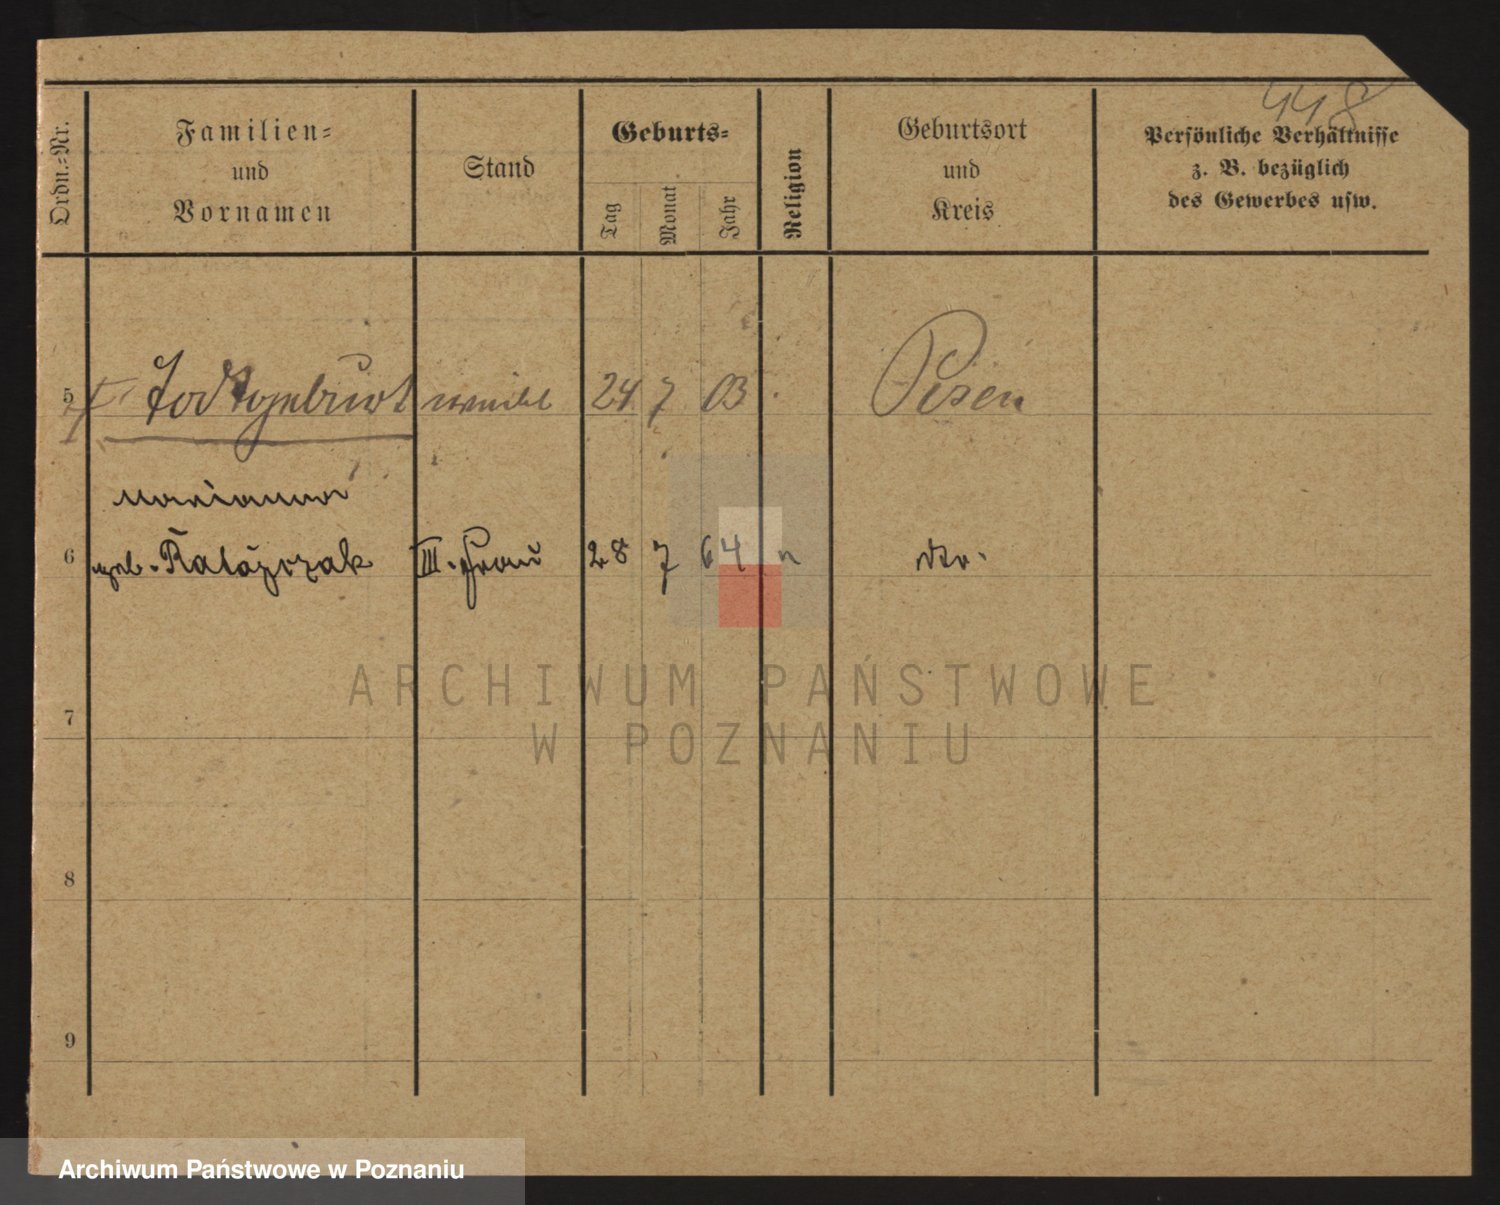 448
Ordn.-Nr.
Familien-
und
Vornamen
Stand
Geburts-
Tag
Monat
Jahr
Religion
Geburtsort
und
Kreis
Persönliche Verhältnisse
z. B. bezüglich
des Gewerbes usw.
5 Todtgeburt weibl 24 7 03 Posen
Marianna
6 geb. Ratajczak III. Frau 28 7 64 " do.
7
8
9
ARCHIWUM PAŃSTWOWE
W POZNANIU
Archiwum Państwowe w Poznaniu